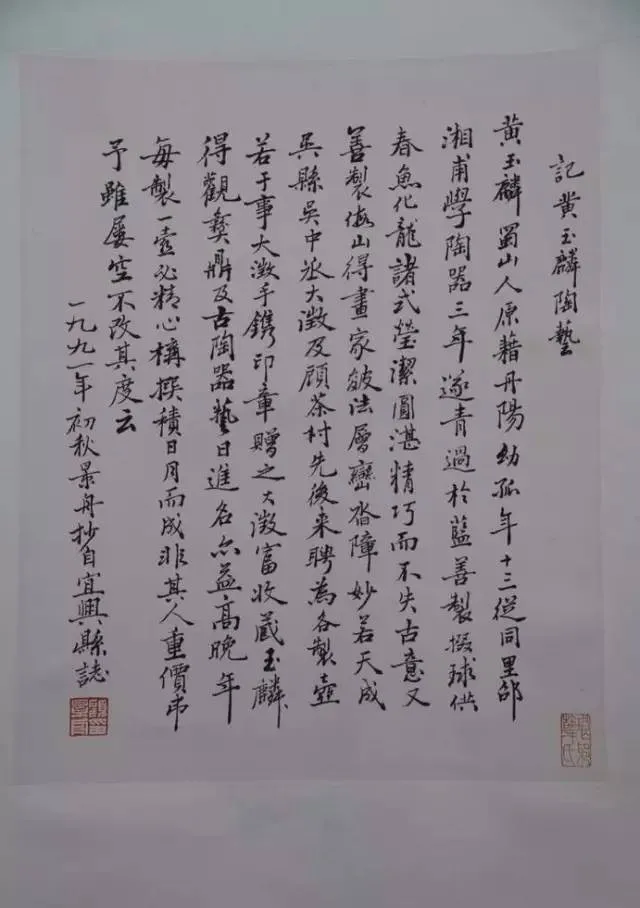 記黄玉麟陶藝
黄玉麟蜀山人原籍丹陽幼孤年十三從同里邵
湘甫學陶器三年遂青過於藍善製掇球供
春魚化龍諸式瑩潔圓湛精巧而不失古意又
善製假山得畫家皴法層巒沓障妙若天成
吳縣吳中丞大澂及顧茶村先後来聘為各製壺
若干事大澂手鐫印章贈之大澂富收藏玉麟
得觀彝鼎及古陶器藝日進名亦益高晚年
每製一壺必精心構撰積日月而成非其人重價弗
予雖屡空不改其度云
一九九一年初秋景舟抄自宜興縣誌